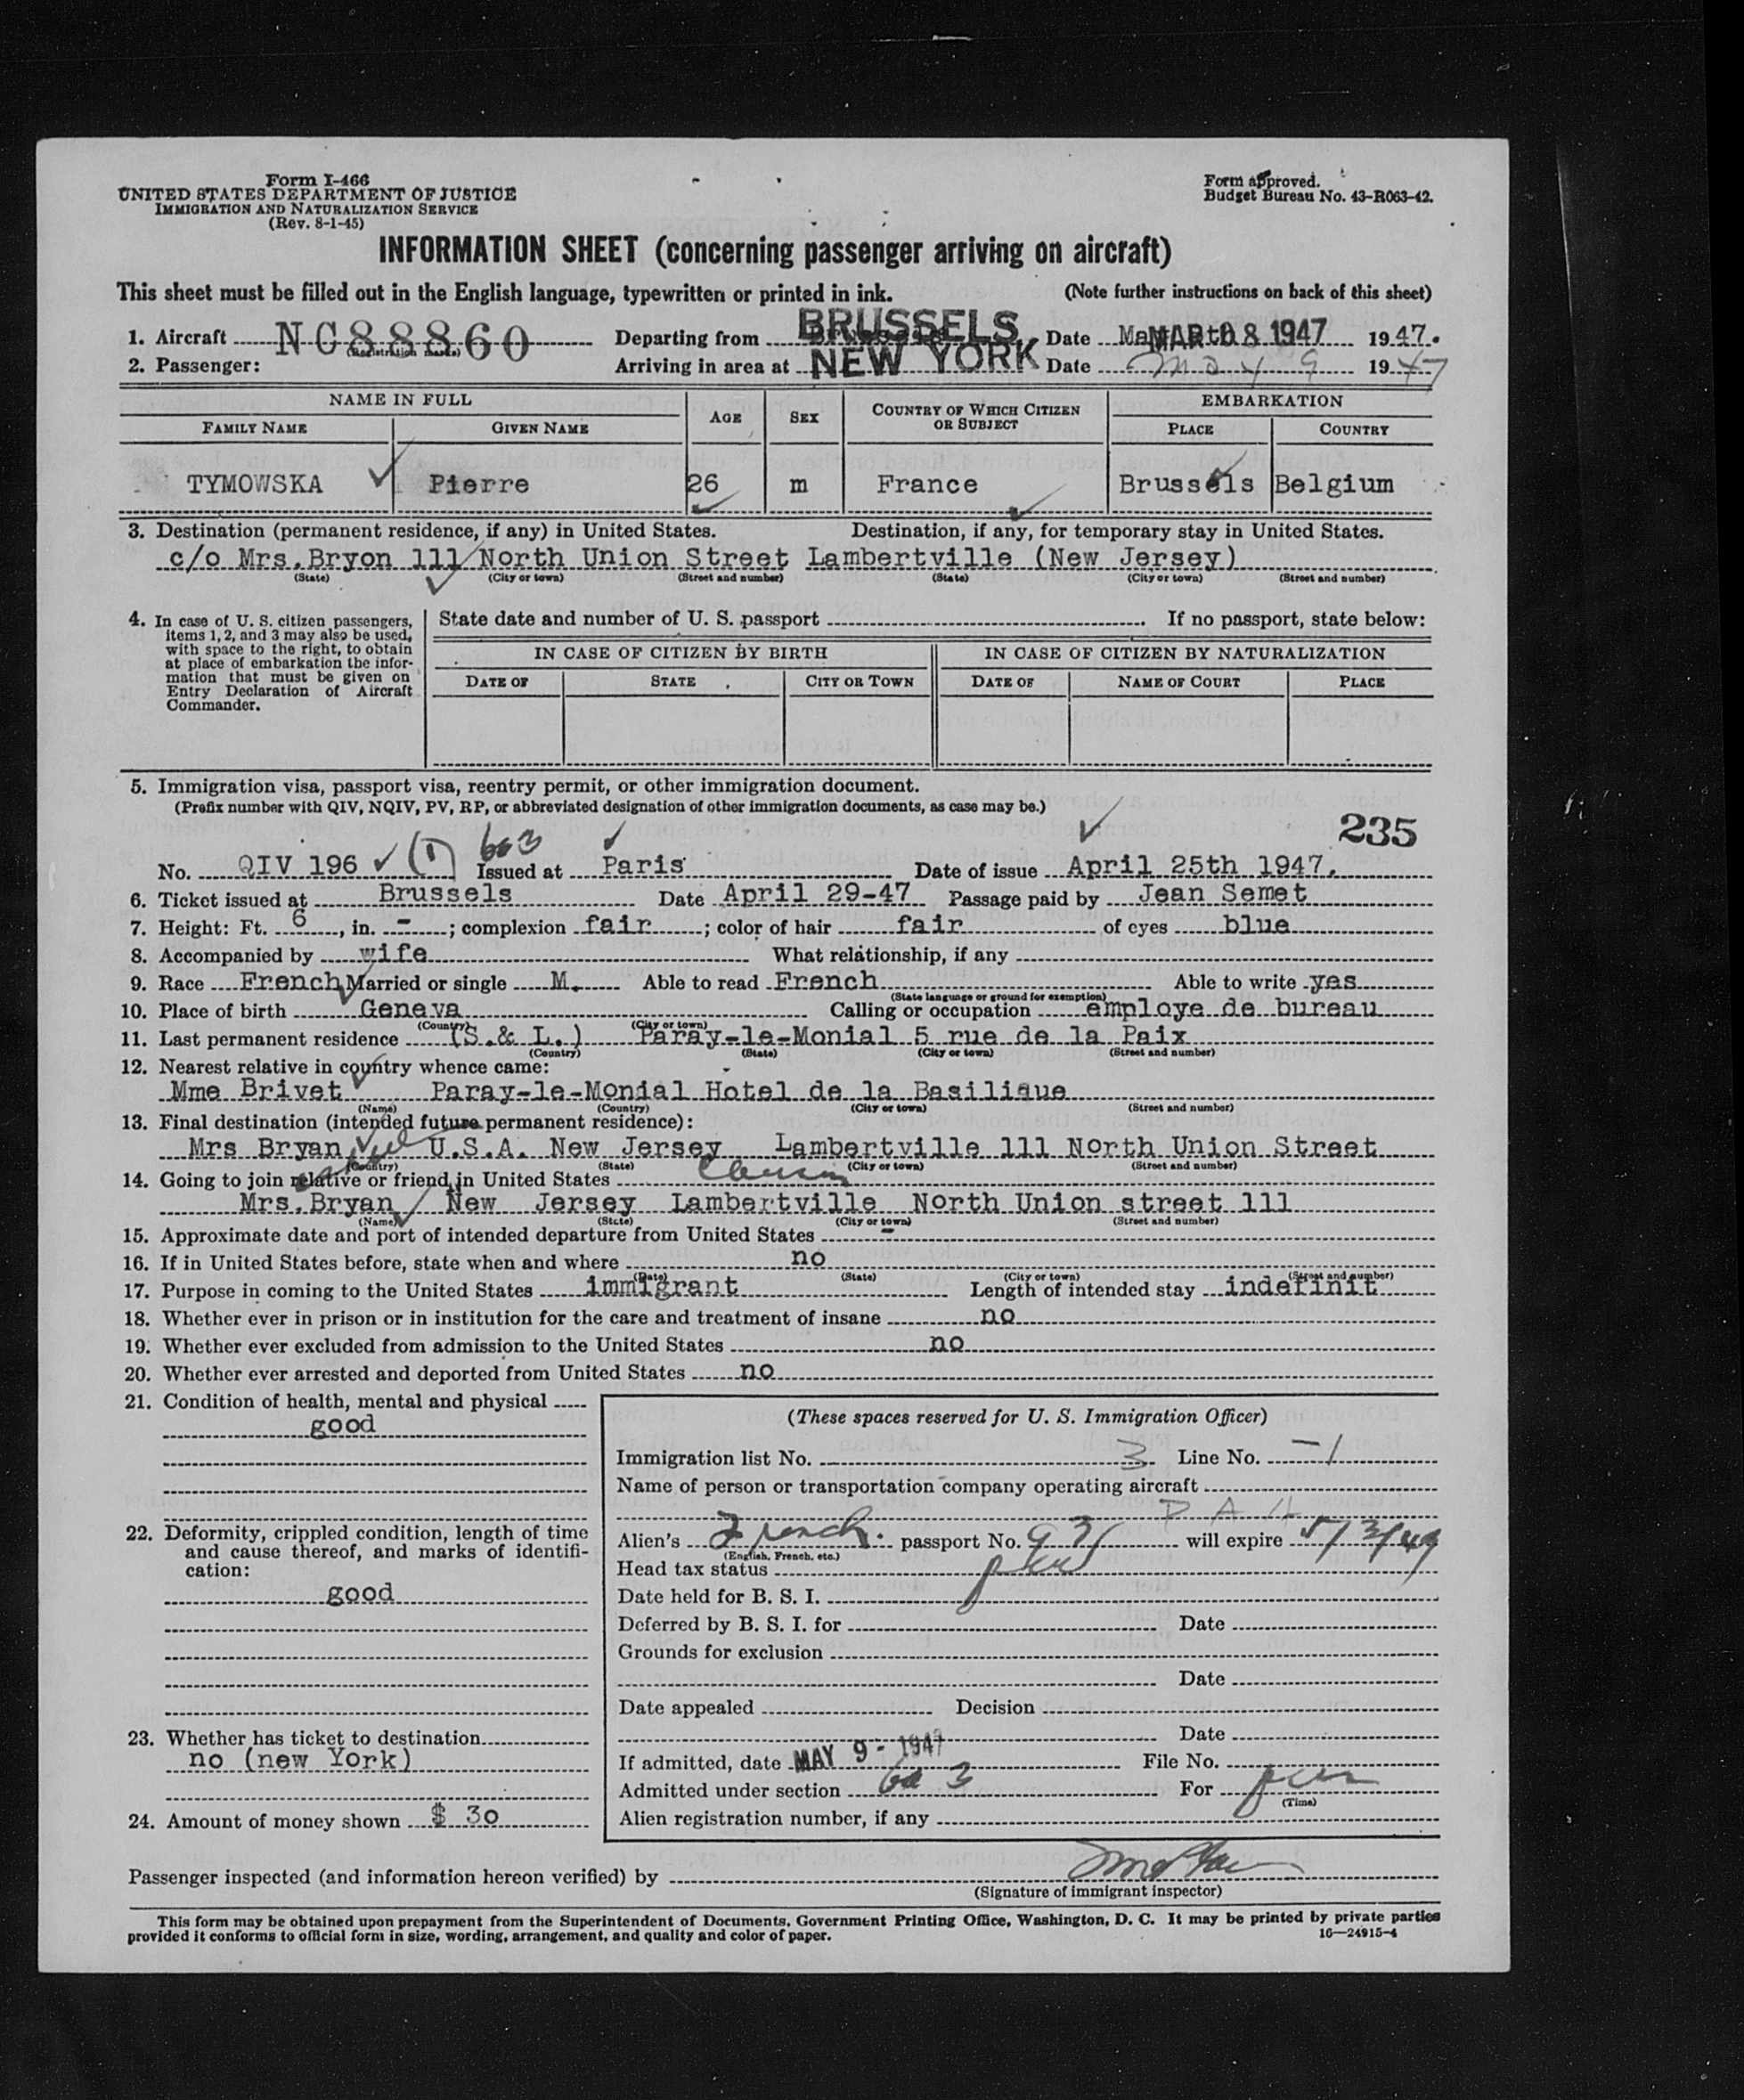 Form I-466
UNITED STATES DEPARTMENT OF JUSTICE
IMMIGRATION AND NATURALIZATION SERVICE
(Rev. 8-1-45)
Form approved.
Budget Bureau No. 43-R063-42.
INFORMATION SHEET (concerning passenger arriving on aircraft)
This sheet must be filled out in the English language, typewritten or printed in ink. (Note further instructions on back of this sheet)
1. Aircraft NC88860 (Registration marks) Departing from BRUSSELS Date MAR 08 1947 1947.
2. Passenger: Arriving in area at NEW YORK Date May 9 1947
NAME IN FULL AGE SEX COUNTRY OF WHICH CITIZEN OR SUBJECT EMBARKATION
FAMILY NAME GIVEN NAME PLACE COUNTRY
TYMOWSKA Pierre 26 m France Brussels Belgium
3. Destination (permanent residence, if any) in United States. Destination, if any, for temporary stay in United States.
c/o Mrs.Bryon 111 North Union Street Lambertville (New Jersey)
(State) (City or town) (Street and number) (State) (City or town) (Street and number)
4. In case of U. S. citizen passengers, items 1, 2, and 3 may also be used, with space to the right, to obtain at place of embarkation the information that must be given on Entry Declaration of Aircraft Commander.
State date and number of U. S. passport If no passport, state below:
IN CASE OF CITIZEN BY BIRTH IN CASE OF CITIZEN BY NATURALIZATION
DATE OF STATE CITY OR TOWN DATE OF NAME OF COURT PLACE
5. Immigration visa, passport visa, reentry permit, or other immigration document.
(Prefix number with QIV, NQIV, PV, RP, or abbreviated designation of other immigration documents, as case may be.)
235
No. QIV 196 (1) 603 Issued at Paris Date of issue April 25th 1947.
6. Ticket issued at Brussels Date April 29-47 Passage paid by Jean Semet
7. Height: Ft. 6, in. -; complexion fair; color of hair fair of eyes blue
8. Accompanied by wife What relationship, if any
9. Race French Married or single M. Able to read French Able to write yes
(State language or ground for exemption)
10. Place of birth Geneva Calling or occupation employe de bureau
(Country) (City or town)
11. Last permanent residence (S.& L.) Paray-le-Monial 5 rue de la Paix
(Country) (State) (City or town) (Street and number)
12. Nearest relative in country whence came:
Mme Brivet Paray-le-Monial Hotel de la Basilique
(Name) (Country) (City or town) (Street and number)
13. Final destination (intended future permanent residence):
Mrs Bryan U.S.A. New Jersey Lambertville 111 North Union Street
(Country) (State) (City or town) (Street and number)
14. Going to join relative or friend in United States
Mrs.Bryan New Jersey Lambertville North Union street 111
(Name) (State) (City or town) (Street and number)
15. Approximate date and port of intended departure from United States -
16. If in United States before, state when and where no
(Date) (State) (City or town) (Street and number)
17. Purpose in coming to the United States immigrant Length of intended stay indefinit
18. Whether ever in prison or in institution for the care and treatment of insane no
19. Whether ever excluded from admission to the United States no
20. Whether ever arrested and deported from United States no
21. Condition of health, mental and physical
good
22. Deformity, crippled condition, length of time and cause thereof, and marks of identification:
good
23. Whether has ticket to destination
no (new York)
24. Amount of money shown $ 30
(These spaces reserved for U. S. Immigration Officer)
Immigration list No. 3 Line No. -1
Name of person or transportation company operating aircraft
P A A
Alien's French. passport No. 931 will expire 5/3/49
(English, French, etc.)
Head tax status
Date held for B. S. I.
Deferred by B. S. I. for Date
Grounds for exclusion
Date
Date appealed Decision
Date
If admitted, date MAY 9 - 1947 File No.
Admitted under section 6a 3 For
(Time)
Alien registration number, if any
Passenger inspected (and information hereon verified) by
(Signature of immigrant inspector)
This form may be obtained upon prepayment from the Superintendent of Documents, Government Printing Office, Washington, D. C. It may be printed by private parties
provided it conforms to official form in size, wording, arrangement, and quality and color of paper. 16—24915-4